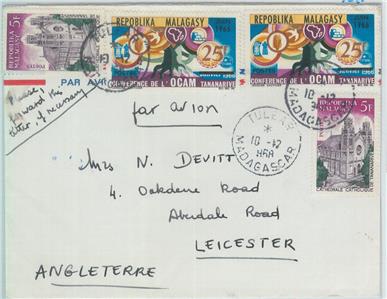 REPOBLIKA MALAGASY 5F
POSTES
REPOBLIKA MALAGASY
JUIN 1966
25F
POSTES
JANVIER 1966
CONFERENCE DE L'OCAM TANANARIVE
REPOBLIKA MALAGASY
JUIN 1966
25F
POSTES
JANVIER 1966
CONFERENCE DE L'OCAM TANANARIVE
PAR AVION
Please
forward this
letter if necessary
par avion
TULEAR
10 - 12
MADAGASCAR
REPOBLIKA MALAGASY 5F
CATHEDRALE CATHOLIQUE
Mrs N. DEVITT
4. Oakdene Road
Aberdale Road
LEICESTER
ANGLETERRE